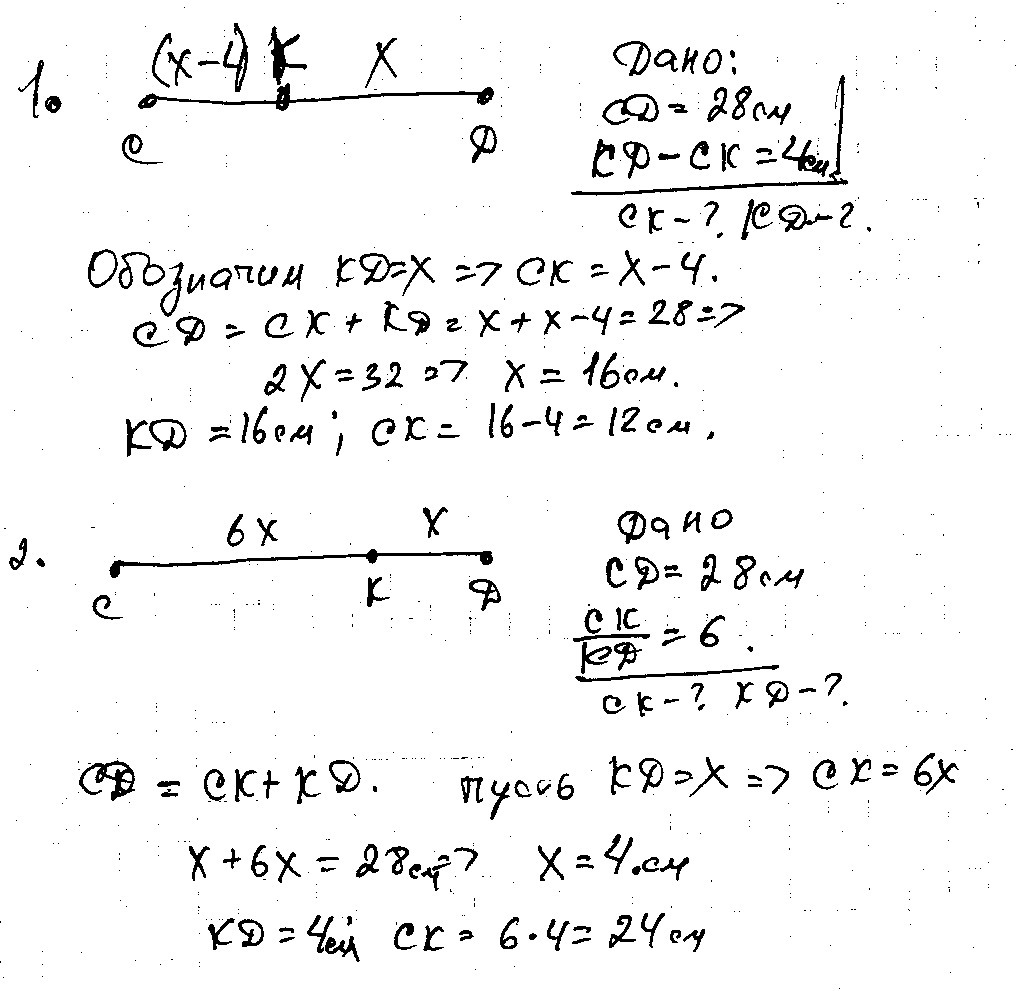 1. (x-4) K x
C D
Дано:
CD = 28см
KD - CK = 4см
CK - ? KD - ?.
Обозначим KD = x => CK = x - 4.
CD = CK + KD = x + x - 4 = 28 =>
2x = 32 => x = 16см.
KD = 16см; CK = 16 - 4 = 12см.
2. 6x x
C K D
Дано
CD = 28см
CK/KD = 6.
CK - ? KD - ?.
CD = CK + KD. Пусть KD = x => CK = 6x
x + 6x = 28см => x = 4.см
KD = 4см; CK = 6 · 4 = 24см